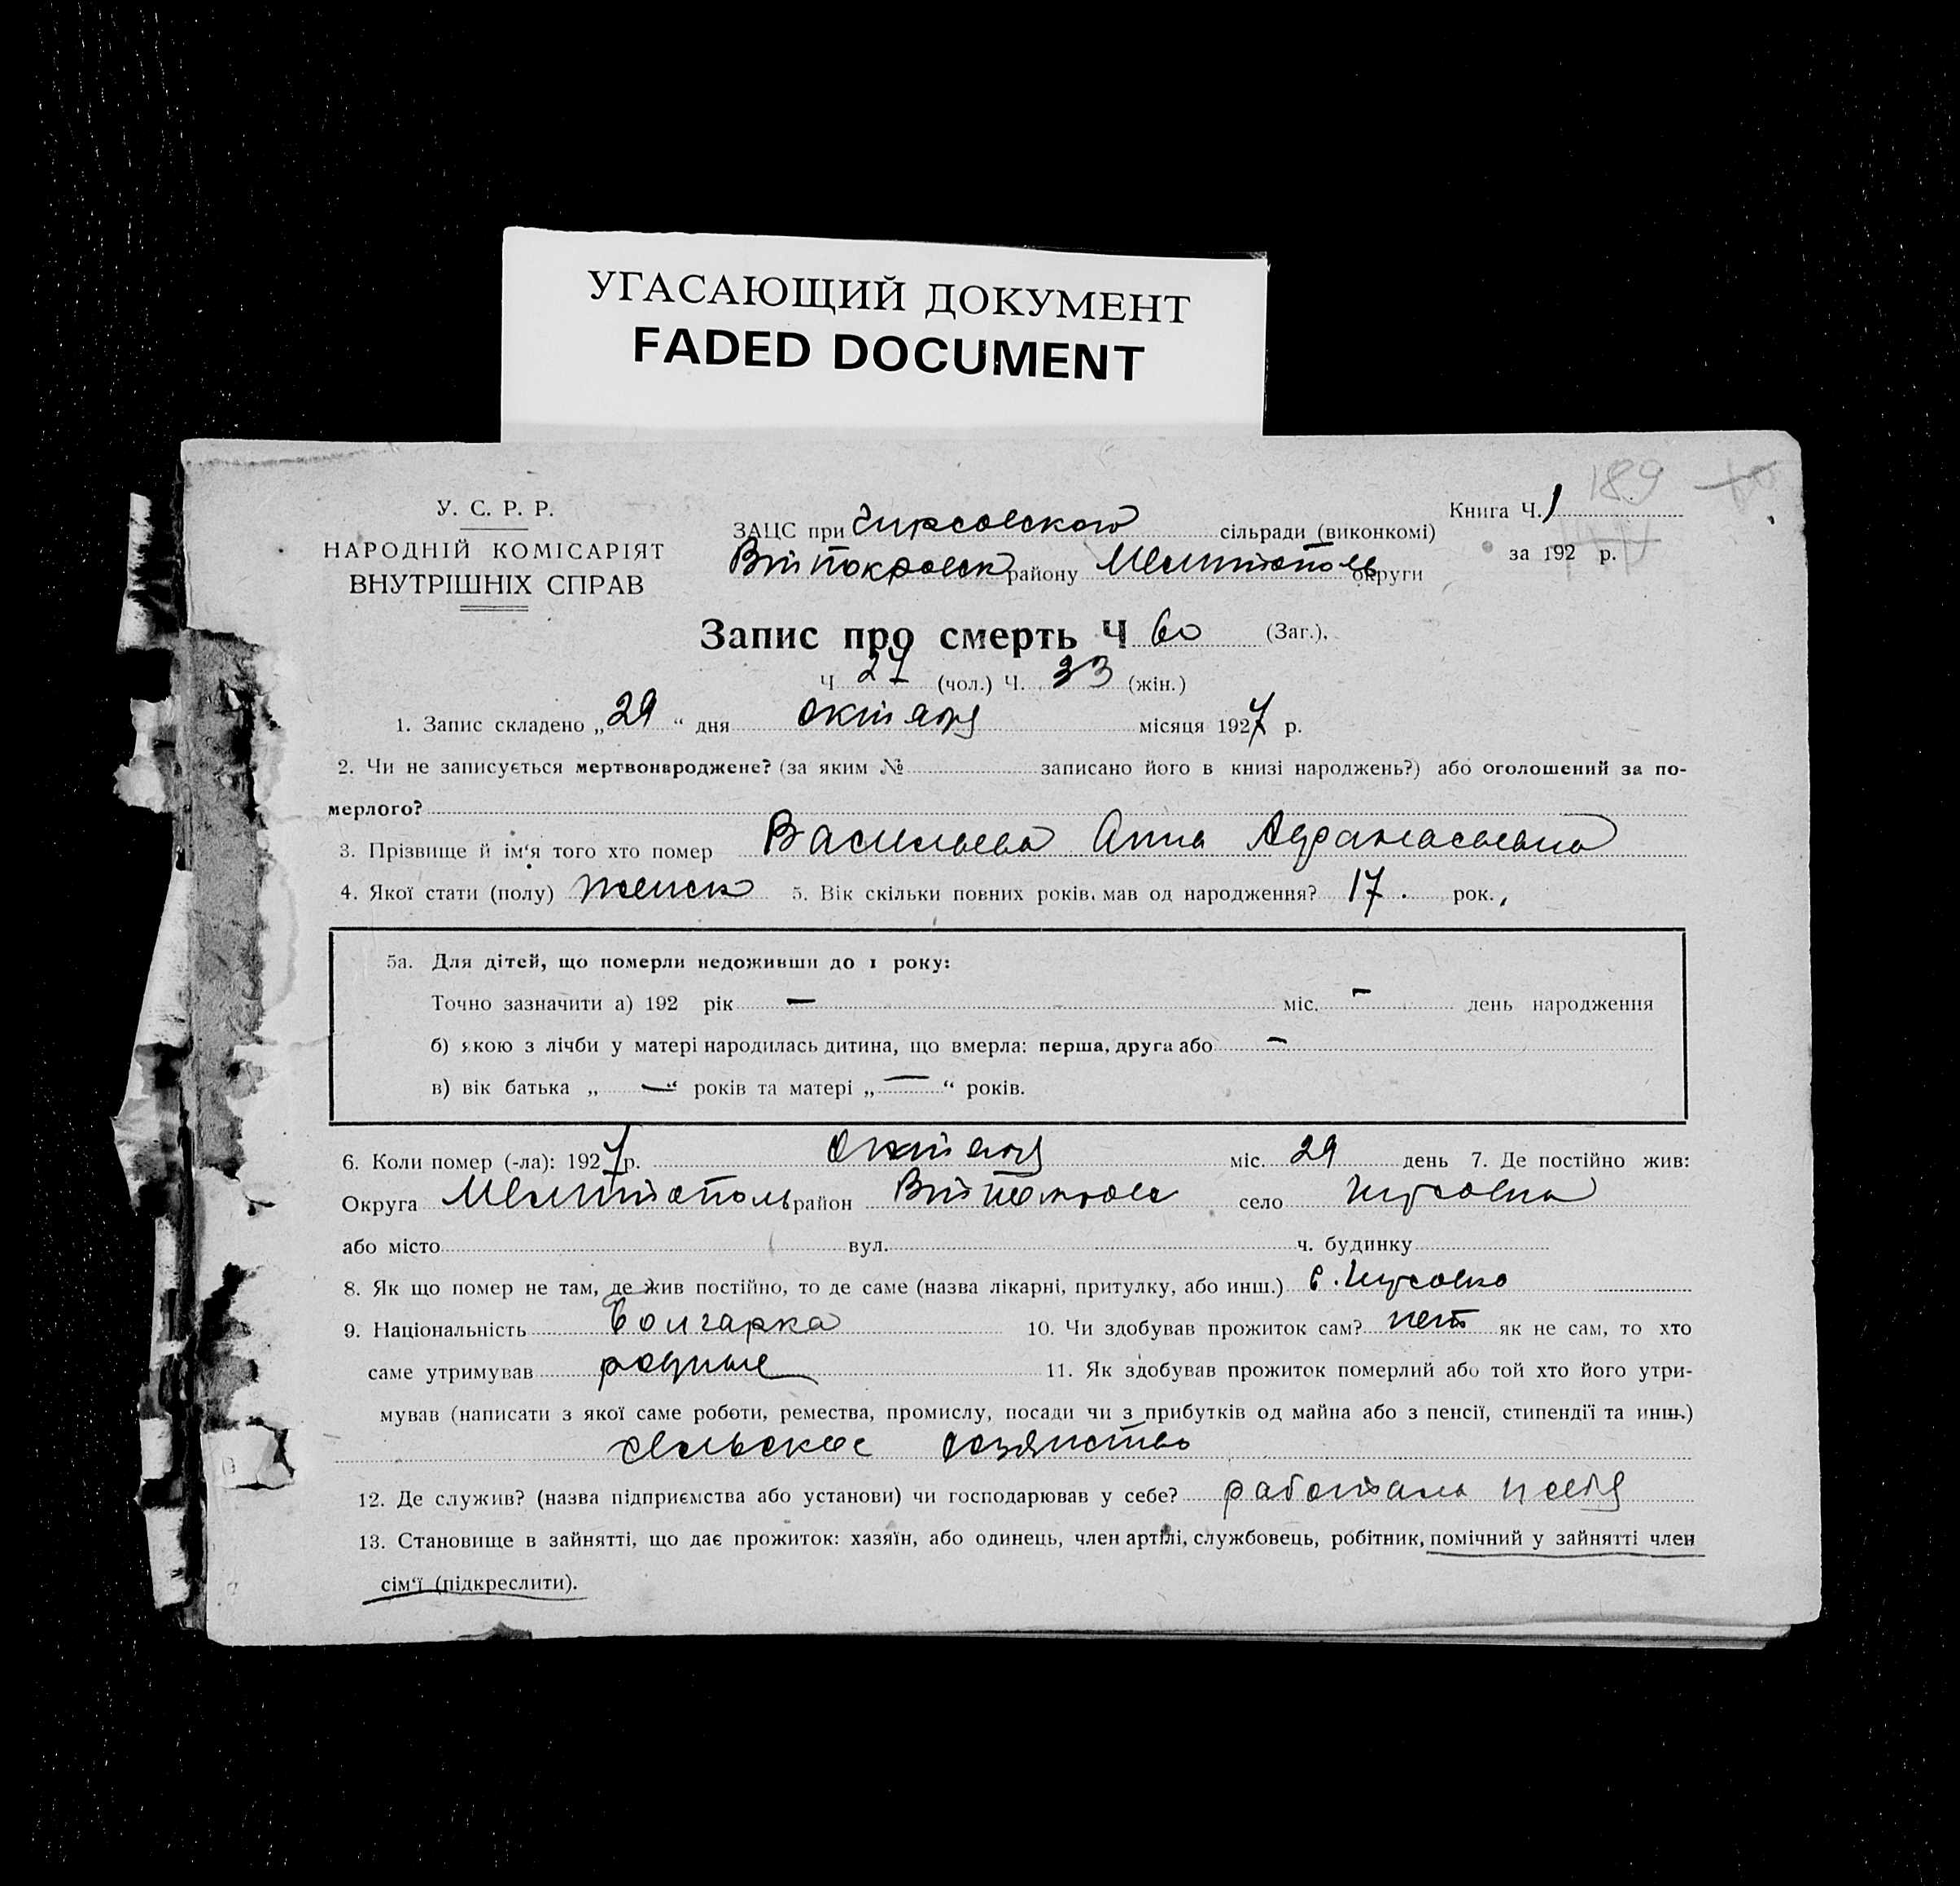 УГАСАЮЩИЙ ДОКУМЕНТ
FADED DOCUMENT
189
У. С. Р. Р.
НАРОДНІЙ КОМІСАРІЯТ
ВНУТРІШНІХ СПРАВ
ЗАЦС при Гирсовского сільради (виконкомі)
Втпокровск району Мелитополь округи
Книга Ч. 1
за 192 р.
Запис про смерть Ч 60 (Заг.).
Ч 27 (чол.) Ч. 33 (жін.)
1. Запис складено „29“ дня октября місяця 1927 р.
2. Чи не записується мертвонароджене? (за яким № записано його в книзі народжень?) або оголошений за по-
мерлого?
3. Прізвище й ім‘я того хто помер Васильева Анна Афанасьевна
4. Якої стати (полу) женск 5. Вік скільки повних років. мав од народження? 17. рок.,
5а. Для дітей, що померли недоживши до 1 року:
Точно зазначити а) 192 рік — міс. - день народження
б) якою з лічби у матері народилась дитина, що вмерла: перша, друга або -
в) вік батька „—“ років та матері „—“ років.
6. Коли помер (-ла): 1927 р. октября міс. 29 день 7. Де постійно жив:
Округа Мелитополь район Втпокровс село Гирсовка
або місто вул. ч. будинку
8. Як що помер не там, де жив постійно, то де саме (назва лікарні, притулку, або инш.) с. Гирсовка
9. Національність болгарка 10. Чи здобував прожиток сам? нет як не сам, то хто
саме утримував родные 11. Як здобував прожиток померлий або той хто його утри-
мував (написати з якої саме роботи, ремества, промислу, посади чи з прибутків од майна або з пенсії, стипендії та инш.)
сельское хозяиство
12. Де служив? (назва підприємства або установи) чи господарював у себе? работала у себя
13. Становище в зайнятті, що дає прожиток: хазяїн, або одинець, член артілі, службовець, робітник, помічний у зайнятті член
сім‘ї (підкреслити).